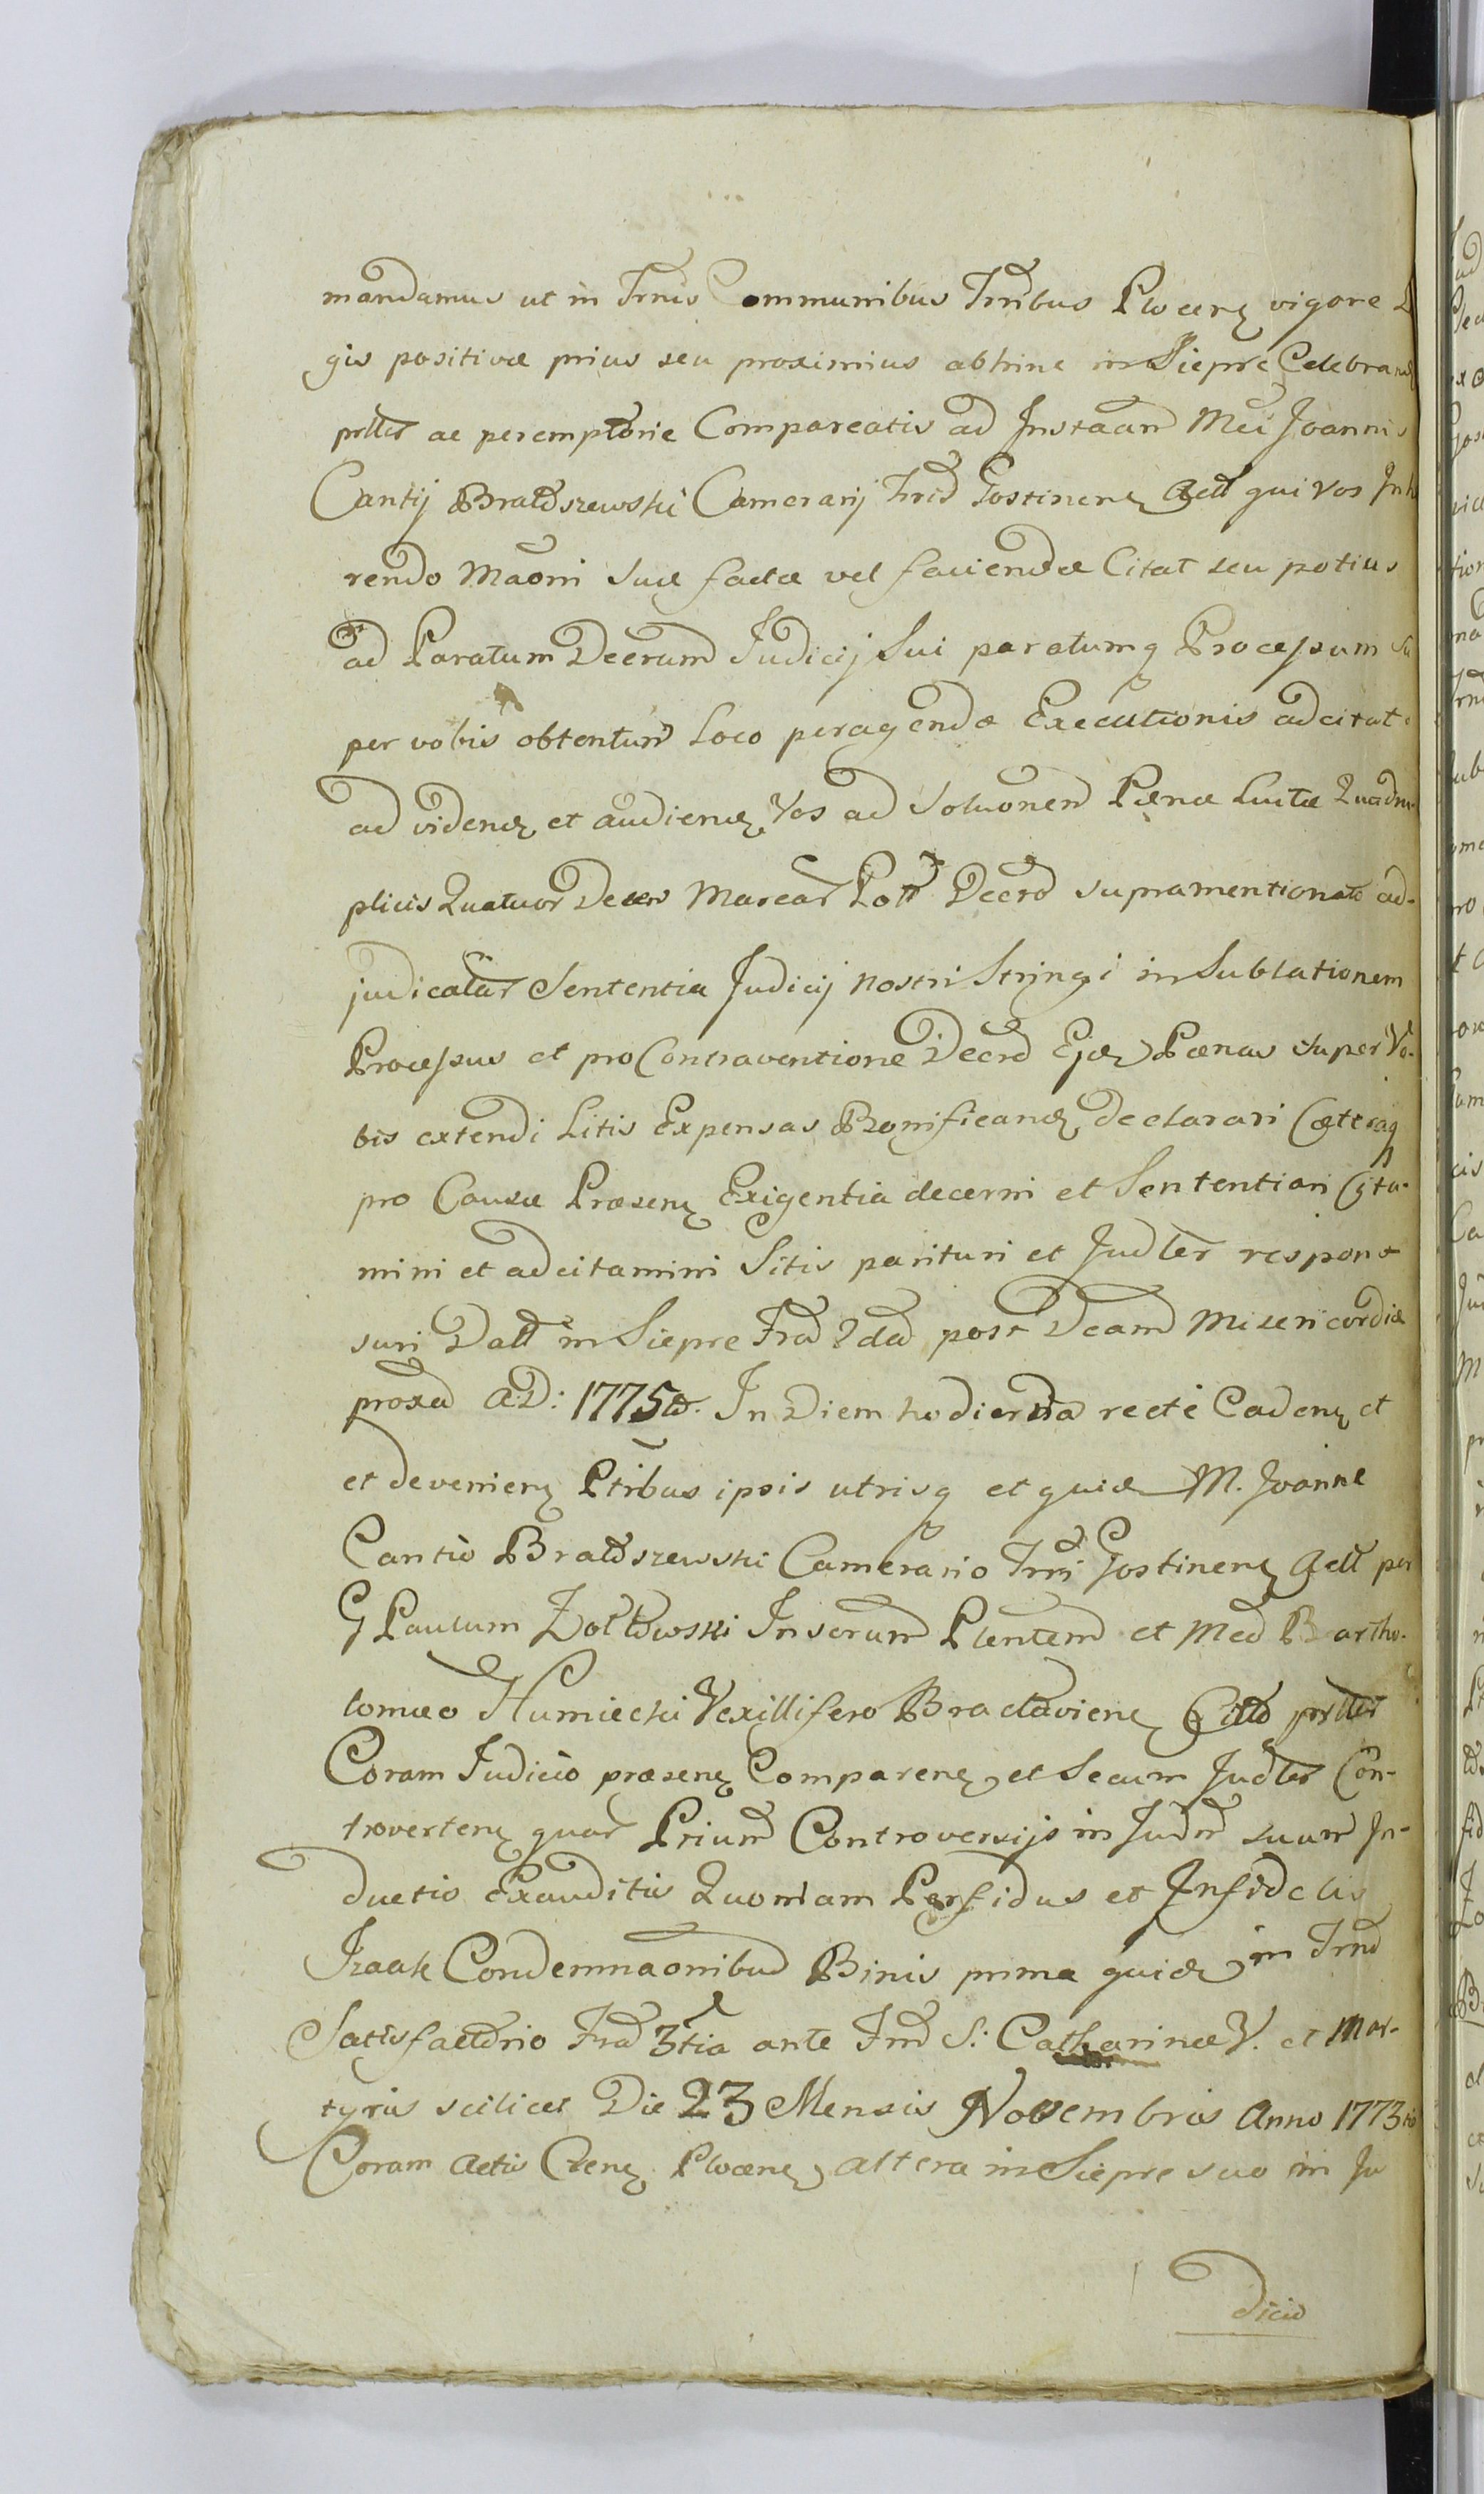 mandamus ut in Trnis Communibus Trribus Plocen vigore
gis positivæ prius seu proximius abhinc in Siepre Celebrand
prlter ac peremptorie Compareatis ad Instaam Mci Joannis
Cantij Bratoszewski Camerarij Tris Gostinen Act qui vos Inh
rendo Maoni suæ factæ vel faciendæ Citat seu potius
ad Paratum Decrum Judicij Sui paratumq Processum su
per vobis obtentum Loco peragendæ Executionis adcitat
ad videnđ et audienđ Vos ad Soluonem Pænæ Luitæ Quadru
plicis Quatuor Decem Marcar Poll Decro supramentionato ad-
judicatar Sententia Judicij nostri Stringi in Sublationem
Processus et pro Contraventione Decro Ejđ Pænas super Vo-
bis extendi Litis Expensas Bonificanđ declarari Cæteraq
pro Causæ Præsenę Exigentia decerni et Sententiari Cita-
mini et adcitamini Sitis parituri et Judler respon-
suri Datt in Siepre Fra 2da post Dcam Misericordiæ
proxa A.D: 1775to. In Diem hodierna recte Cadenę et
et devenienę Ptribus ipsis utrisq et quid M. Joanne
Cantio Bratoszewski Camerario Trri Gostinenę Act per
G Paulum Zołtowski Inserum Plentem et Mco Bartho-
lomæo Humiecki Vexillifero Braclavienę Citto prlter
Coram Judicio præsenę Comparenę et Secum Judler Con-
trovertenę quar Prium Controversijs in Judm suum In-
ductis Exauditis Quoniam Perfidus et Infidelis
Izaak Condemnaonibus Binis prima quid in Trno
Satisfactorio Fra 3tia ante Fm S: Catharinæ V. et Mar-
tyris scilicet Die 23 Mensis Novembris Anno 1773tio
Coram Actis Cten Plocenę altera in Siepre suo in Ju
dicio